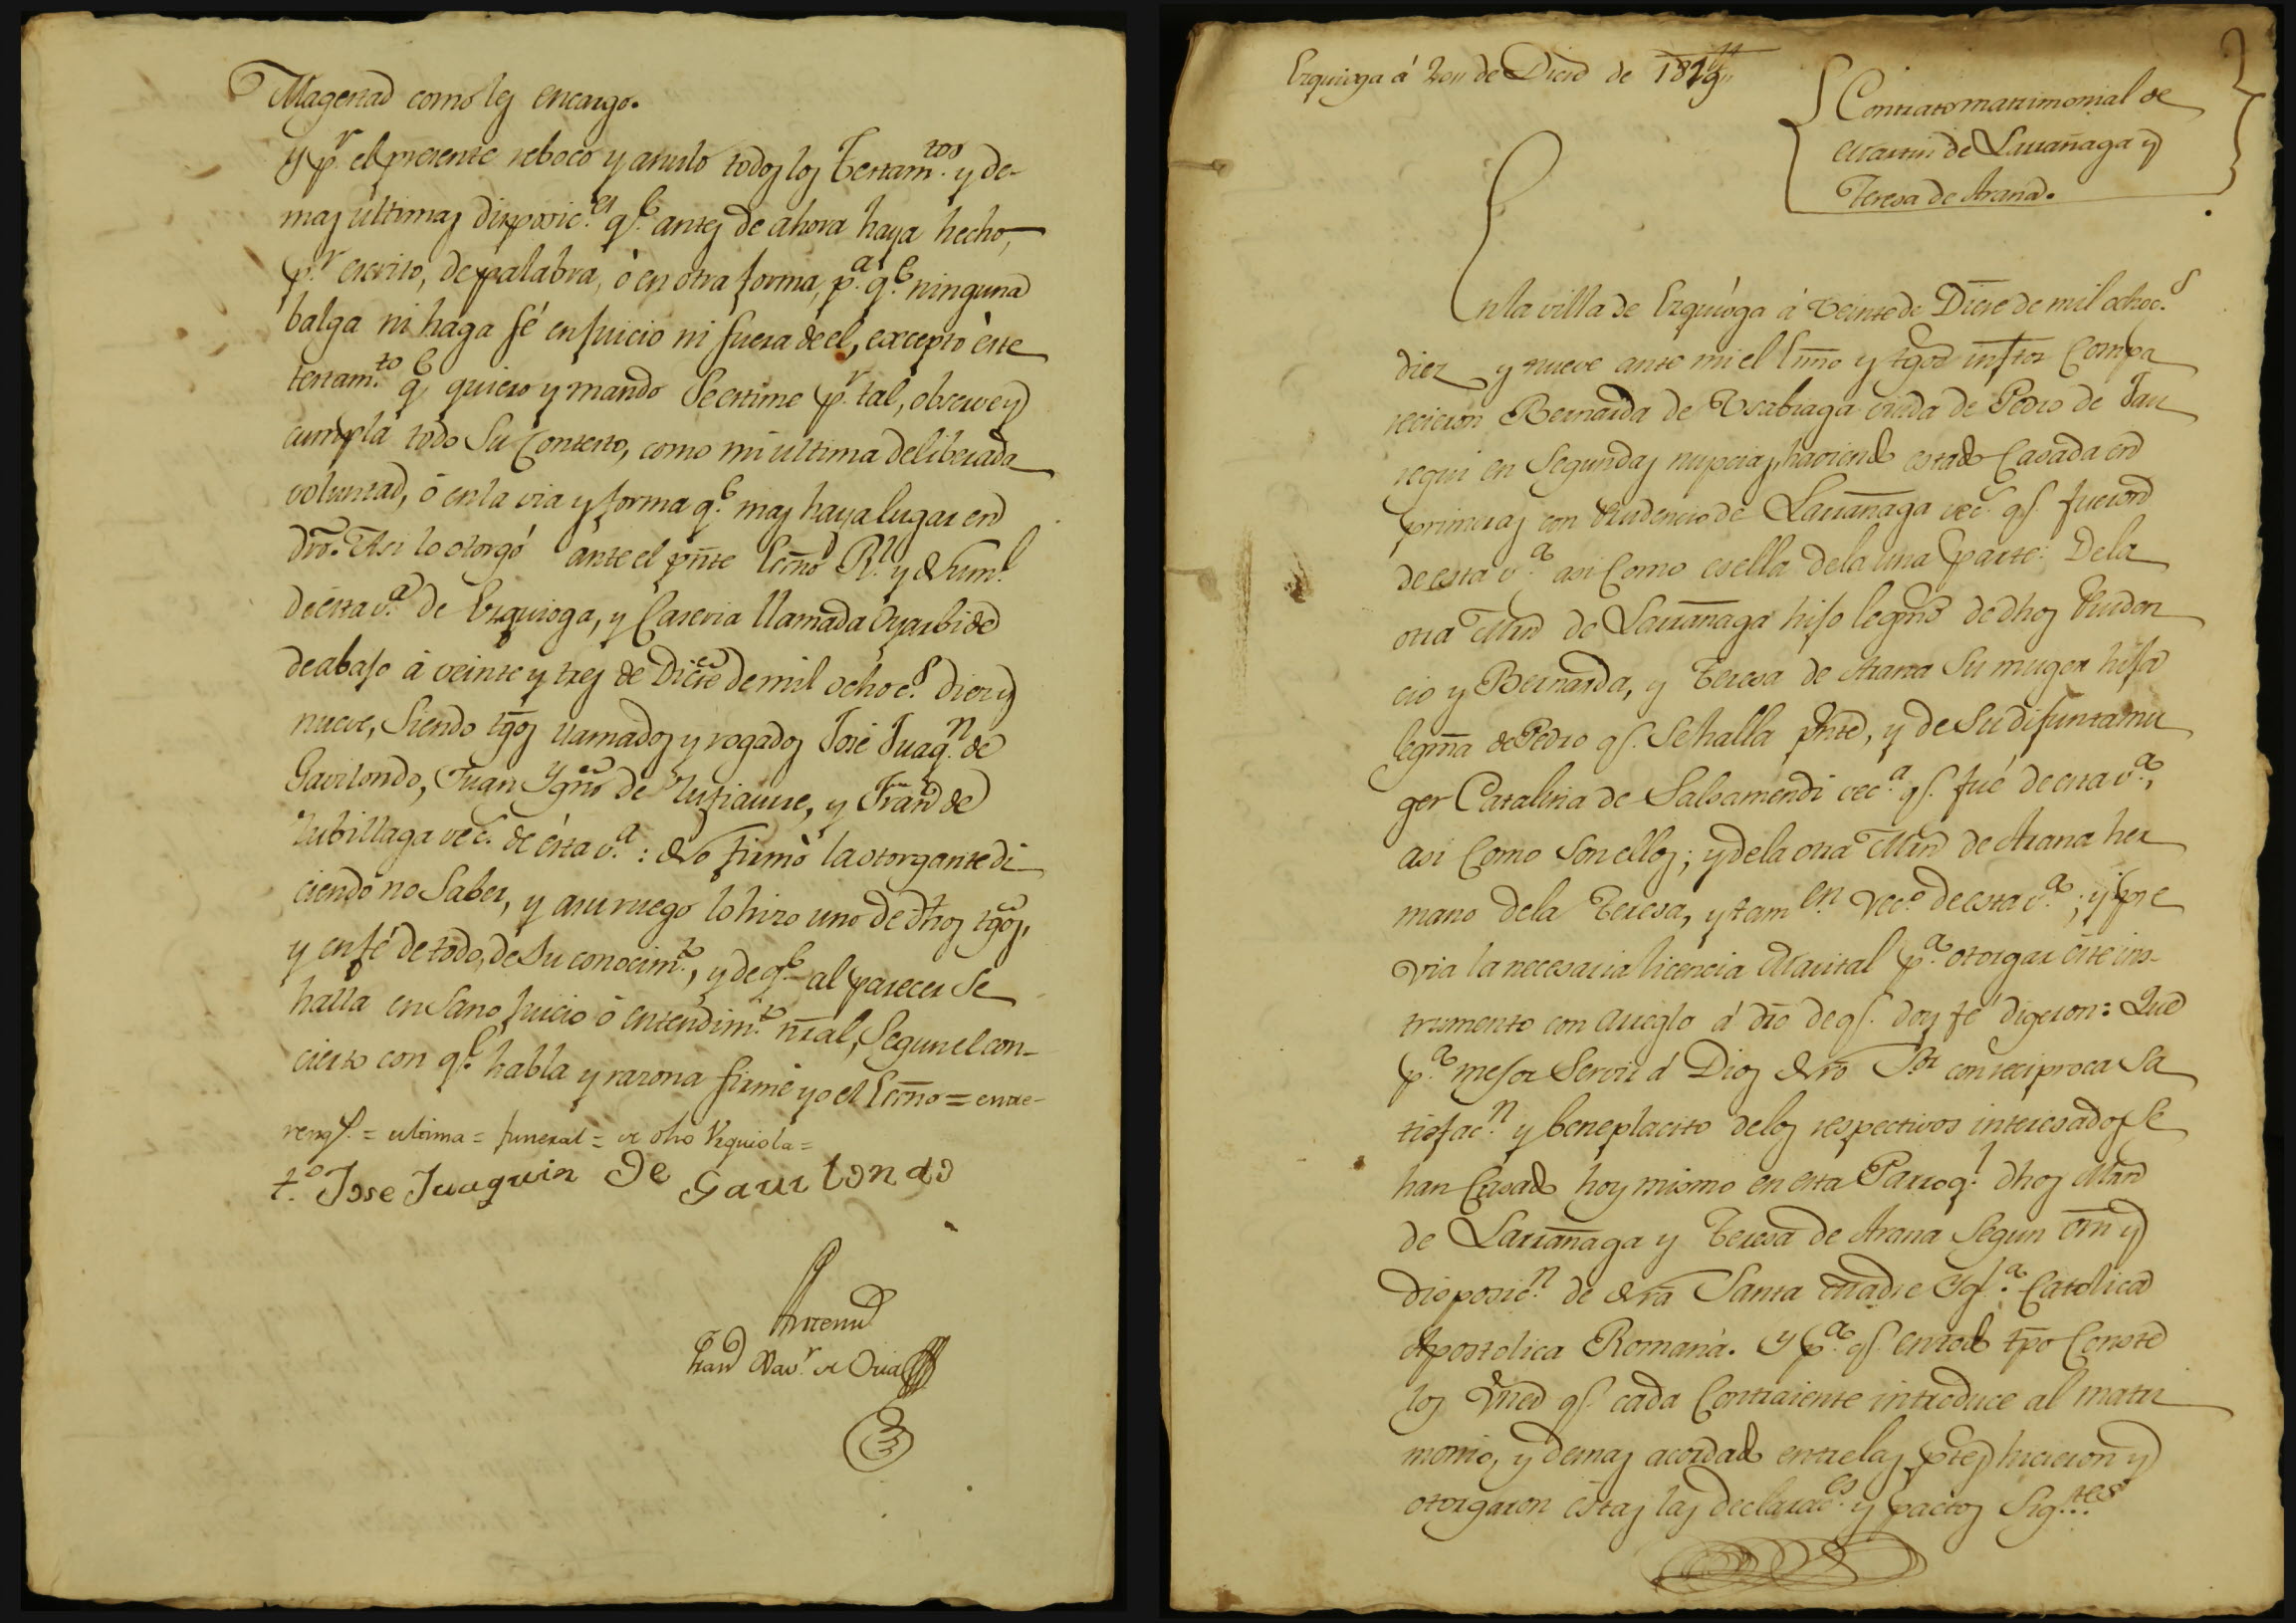 Magestad como les encargo.
y p.r el presente reboco y anulo todos los Testam.tos y de-
mas ultimas disposic.es q.e antes de ahora haya hecho,
p.r escrito, de palabra, ò en otra forma, p.a q.e ninguna
balga ni haga fé en juicio ni fuera de el, excepto èste
testam.to q.e quiero y mando se estime p.r tal, observe y
cumpla todo su contesto, como mi ultima deliberada
voluntad, ó en la via y forma q.e mas haya lugar en
dro. Asi lo otorgó ante el pñte Esño R.l y Num.l
de esta v.a de Ezquioga, y Caseria llamada Oyarbide
de abajo á veinte y tres de Dicre de mil ochoc.s diez y
nueve, siendo tgos llamados y rogados José Juaq.n de
Gavilondo, Juan Ygno de, y Fran de
Zubillaga vec.s de ésta v.a: No firmò la otorgante di
ciendo no saber, y asu ruego lo hizo uno de dhos tgos,
y en fé de todo, de su conocim.to, y de q.e al parecer se
halla en sano juicio ó entendim.to ñral, segun el con-
cierto con q.e habla y razona firmé yo el Esño = entre-
rengs. = ultima = funeral = otro Ezquiola =
t.o Jose Juaquin de Gavilondo
Antemi
Fran Xav.r de Oria
Ezquioga á 20 de Dicre de 1819
Contrato matrimonial de
Martin de Larrañaga y
Teresa de Arana.
En la villa de Ezquióga á veinte de Dicre de mil ochoc.s
diez y nueve ante mi el Esño y tgos infros compa
recieron Bernarda de Usabiaga viuda de Pedro de Jau
regui en segundas nupcias, haviendo estado casada en
primeras con Prudencio de Larrañaga vec.s q.e fueron
de esta v.a asi como es ella de la una parte: De la
otra Mrn de Larrañaga hijo legmo de dhos Pruden
cio y Bernarda, y Teresa de Arana su muger hija
legma de Pedro q.e se halla pñte, y de su difunta mu
ger Catalina de Salsamendi vec.a q.e fué de esta v.a,
asi como son ellos; y de la otra Mrn de Arana her
mano de la Teresa, y tam.en vec.o de esta v.a; y pre
via la necesaria licencia Marital p.a otorgar este ins-
trumento con arreglo á dro de q.e doy fé digeron: Que
p.a mejor servir á Dios Nro S.or con reciproca sa
tisfac.n y beneplacito de los respectivos interesados se
han casado hoy mismo en esta Parroq.l dhos Mrn
de Larrañaga y Teresa de Arana segun orn y
disposic.n de Nra Santa Madre Ygl.a Catolica
Apostolica Romana. Y p.a q.e en todo tpo conste
los vnes q.e cada contraiente introduce al matri
monio, y demas acordado entre las ptes hicieron y
otorgaron estas las declarac.es y pactos sig.tes